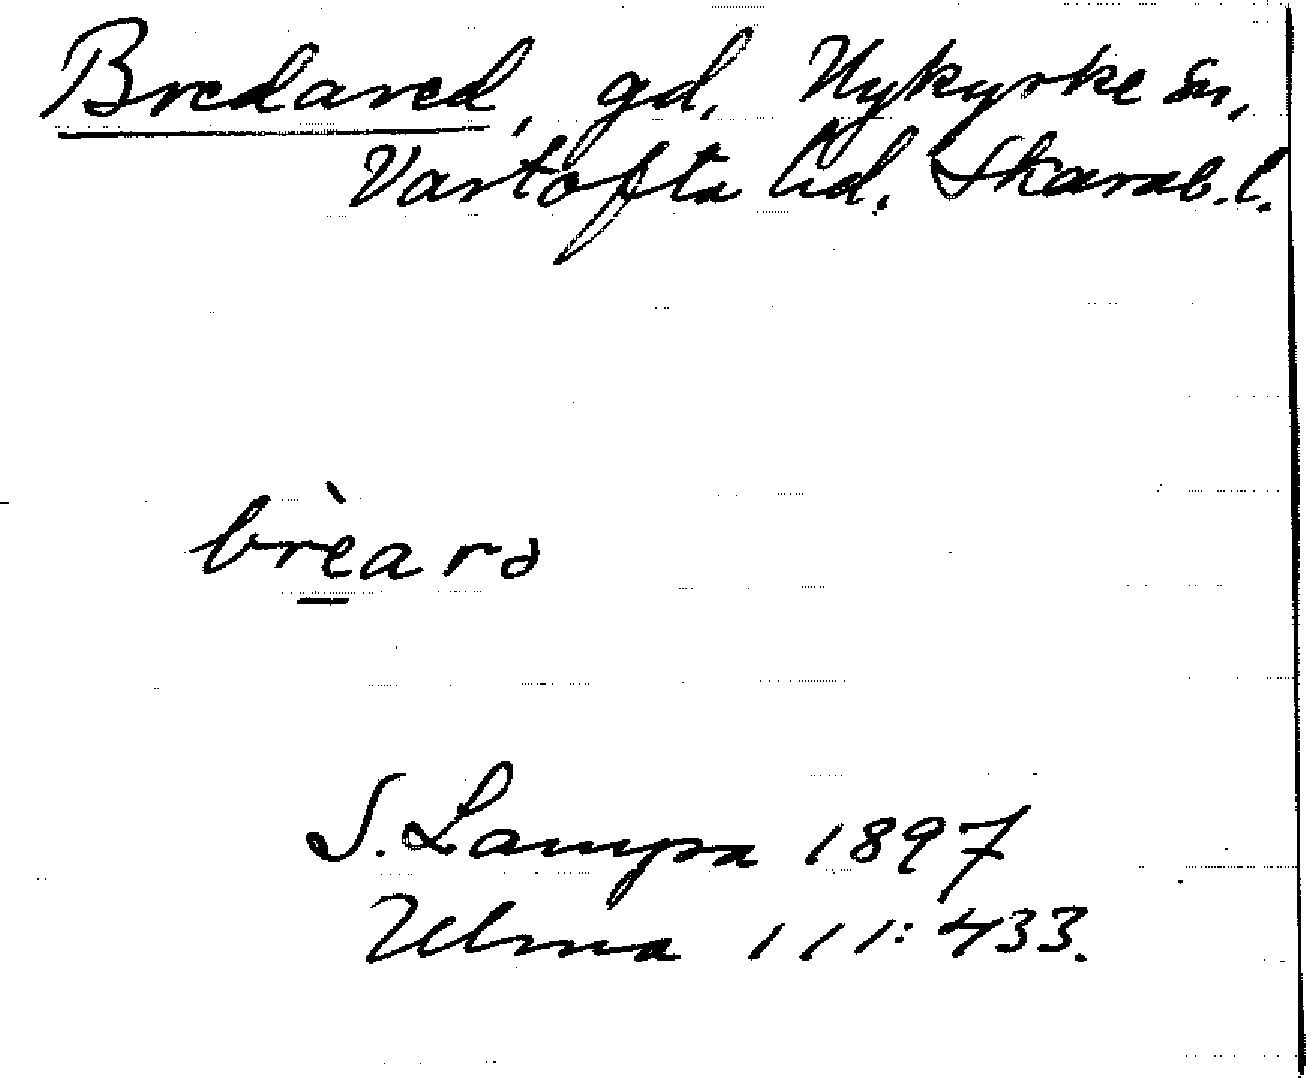 Bredared, gd, Nykyrke sn,
Vartofta hd. Skarab. l.
brèarə
S. Lampa 1897
Ulma 111:433.